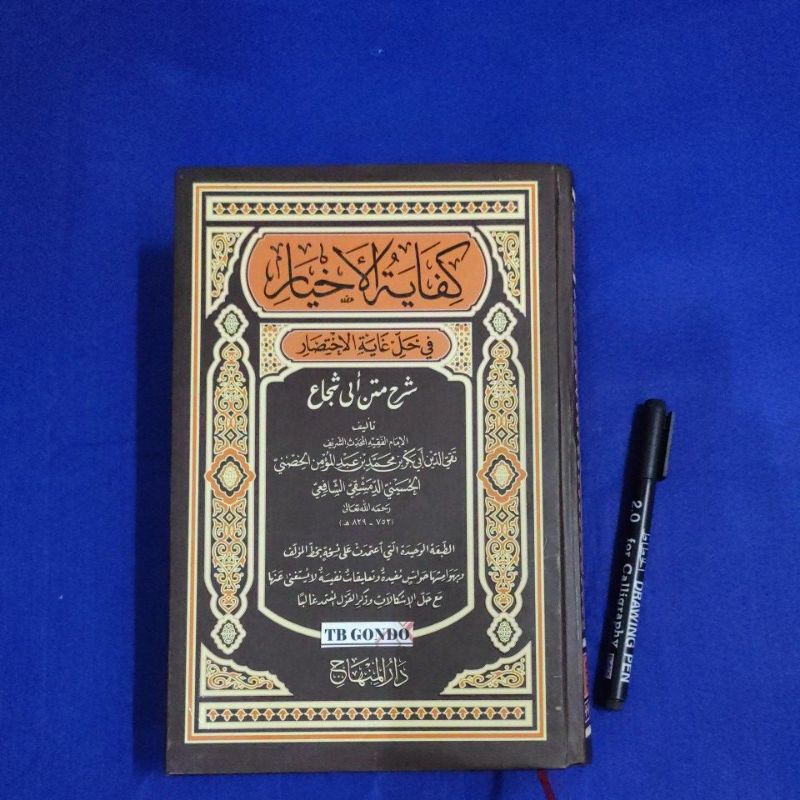 كِفَايَةُ الأَخْيَارِ
فِي حَلِّ غَايَةِ الاِخْتِصَارِ
شرح متن أبي شجاع
تأليف
الإمام الفقيه المحدث الشريف
تقي الدين أبي بكر بن محمد بن عبد المؤمن الحصني
الحسيني الدمشقي الشافعي
رحمه الله تعالى
(٧٥٢ - ٨٢٩ هـ)
الطبعة الوحيدة التي اعتمدت على نسخة بخط المؤلف
وبهوامشها حواش مفيدة وتعليقات نفيسة لا يستغنى عنها
مع حل الإشكالات وذكر القول المعتمد غالبًا
TB GONDO
دار المنهاج
2.0 for Calligraphy
DRAWING PEN